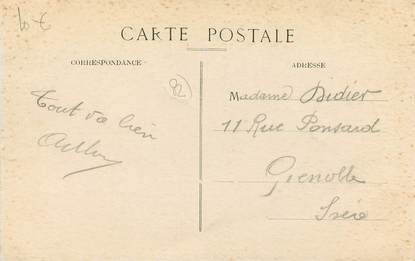 10 €
CARTE POSTALE
CORRESPONDANCE
ADRESSE
92
Tout va bien
Madame Didier
11 Rue Ponsard
Grenoble
Isère